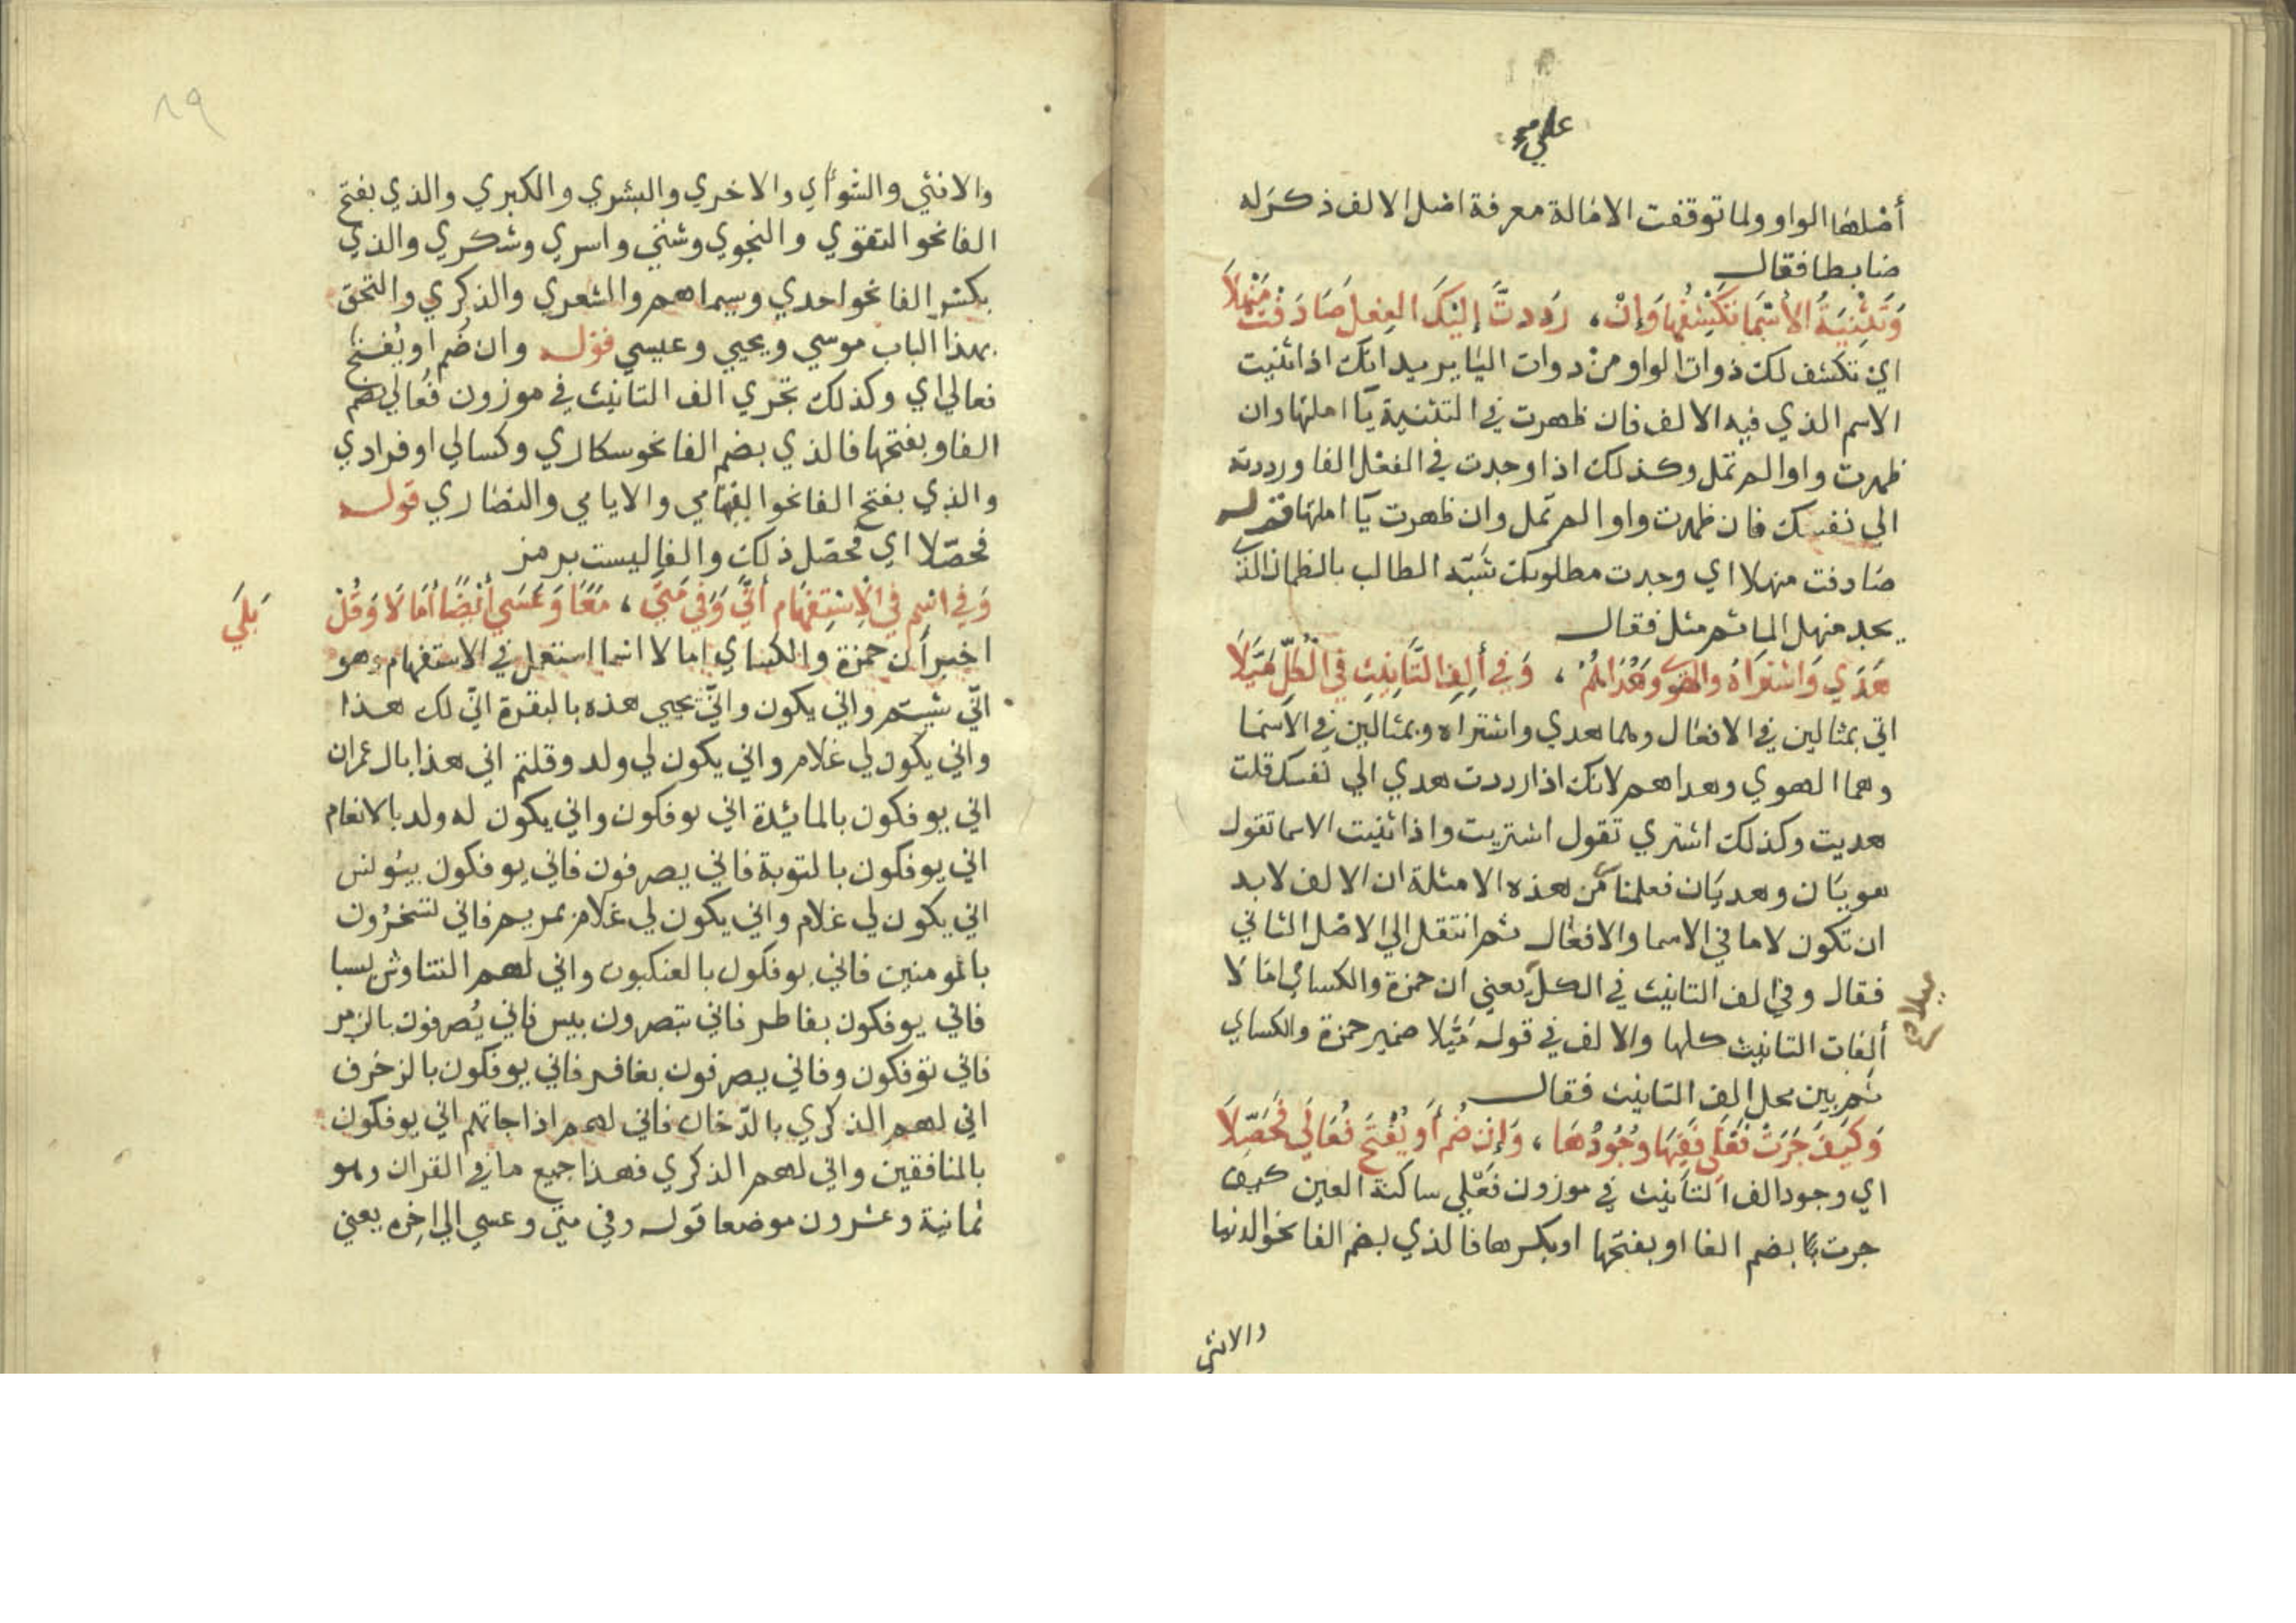 علي م
أصلها الواو ولما توقفت الامالة معرفة اصل الالف ذكرله
ضابطا فقال
وَتَثْنِيَةُ الأَسْمَا تَكْشِفُهَا وَإِنْ، رَدَدتَّ إِلَيْكَ الفِعْلَ صَادَفْتَ مَنْهَلَا
اي تكشف لك ذوات الواو من دوات اليا يريد انك اذا ثنيت
الاسم الذي فيه الالف فان ظهرت في التثنية يآ املتها وان
ظهرت واوا لم تمل وكذلك اذا وجدت في الفعل الفا ورددته
الي نفسك فان ظهرت واوا لم تمل وان ظهرت يآ املتها قوله
صادفت منهلا اي وجدت مطلوبك شبّه الطالب بالظمان الذي
يجد منهل الما ثم مثل فقال
هَدَي وَاشْتَرَاهُ والهوي وَهُدَاهُمُ، وَفِي أَلِفِ التَّانِيثِ فِي الْكُلِّ مَيَّلَا
اتي بمثالين في الافعال وهما هدي واشتراه وبمثالين في الاسما
وهما الهوي وهداهم لانك اذا رددت هدي الي نفسك قلت
هديت وكذلك اشتري تقول اشتريت واذا ثنيت الاسما تقول
هويان وهديان فعلمنا من هذه الامثلة ان الالف لابد
ان تكون لاما في الاسما والافعال ثم انتقل الي الاصل الثاني
فقال وفي الف التانيث في الكل يعني ان حمزة والكساي امالا
ميلا
ألفات التانيث كلها والالف في قوله مَيَّلا ضمير حمزة والكساي
ثم بين محل الف التانيث فقال
وَكَيْفَ جَرَتْ فَعْلَي فَفِيهَا وُجُودُهَا، وَإِنْ ضُمَّ أَو يُفْتَحْ فُعَالَي فَحَصِّلَا
اي وجود الف التانيث في موزون فعلي ساكنة العين كيف
جرت بضم الفا او بفتحها او بكسرها فالذي بضم الفا نحو الدنيا
والانثي
٨٩
والانثي والسوأي والاخري والبشري والكبري والذي بفتح
الفا نحو التقوي والنجوي وشتي واسري وشكري والذي
بكسر الفا نحو احدي وسيماهم والشعري والذكري والتحق
بهذا الباب موسي ويحيي وعيسي قوله وان ضُم او يُفتح
فعالي اي وكذلك تجري الف التانيث في موزون فُعالي بضم
الفا وبفتحها فالذي بضم الفا نحو سكاري وكسالي او فرادي
والذي بفتح الفا نحو اليتامي والايامي والنصاري قوله
فحصّلا اي فحصّل ذلك والفا ليست برمز
وَفِي اسْمٍ فِي الْاِسْتِفْهَامِ أَنَّي وَفِي مَتَي، مَعًا وَعَسَي أَيْضًا أَمَالَا وَقُلْ
بَلَي
اخبر أن حمزة والكساي امالا اسما استعمل في الاستفهام وهو
انّي شيتم واني يكون وانّي يحيي هذه بالبقرة انّي لك هذا
واني يكون لي غلام واني يكون لي ولد وقلتم اني هذا بال عمران
اني يوفكون بالمائدة اني يوفكون واني يكون له ولد بالانعام
اني يوفكون بالتوبة فاني يصرفون فاني يوفكون بيونس
اني يكون لي غلام واني يكون لي غلام بمريم فاني تسحرون
بالمومنين فاني يوفكون بالعنكبوت واني لهم التناوش بسبا
فاني يوفكون بفاطر فاني تبصرون بيس فاني يُصرفون بالزمر
فاني توفكون وفاني يصرفون بغافر فاني يوفكون بالزخرف
اني لهم الذكري بالدّخان فاني لهم اذا جاتهم اني يوفكون
بالمنافقين واني لهم الذكري فهذا جميع ما في القران وهو
ثمانية وعشرون موضعا قوله وفي متي وعسي الي اخره يعني